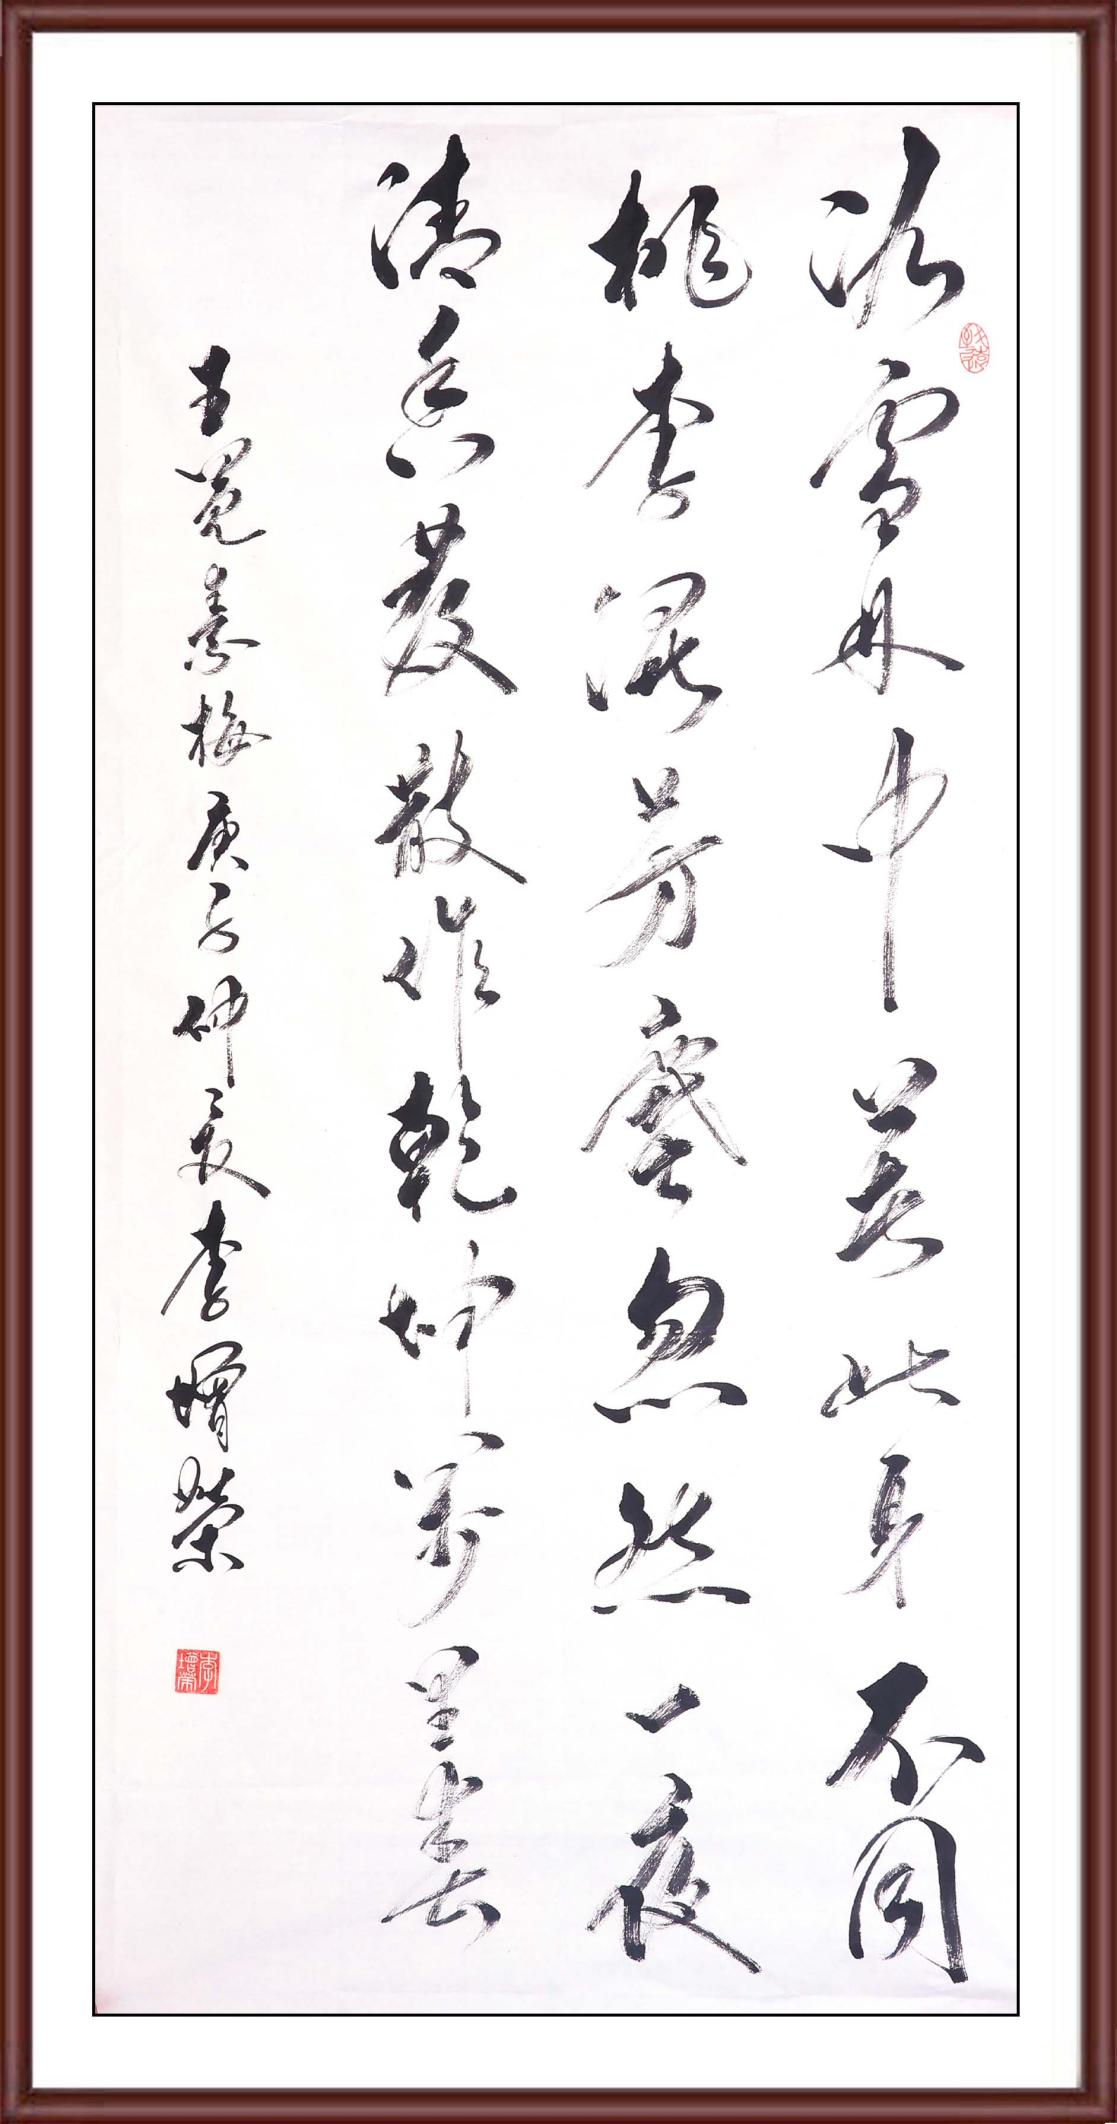 冰雪林中著此身不同
桃李混芳塵忽然一夜
清香發散作乾坤萬里春
王冕素梅庚子仲夏李增榮
李增榮